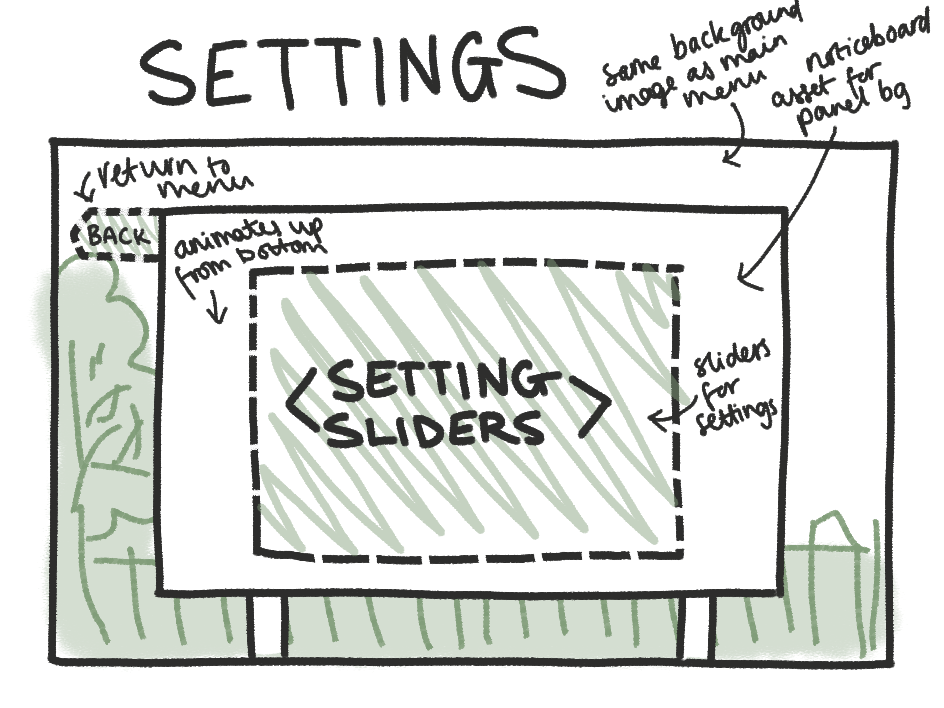 SETTINGS
same background
image as main
menu
noticeboard
asset for
panel bg
return to
menu
BACK
animates up
from bottom
<SETTING
SLIDERS>
sliders
for
settings